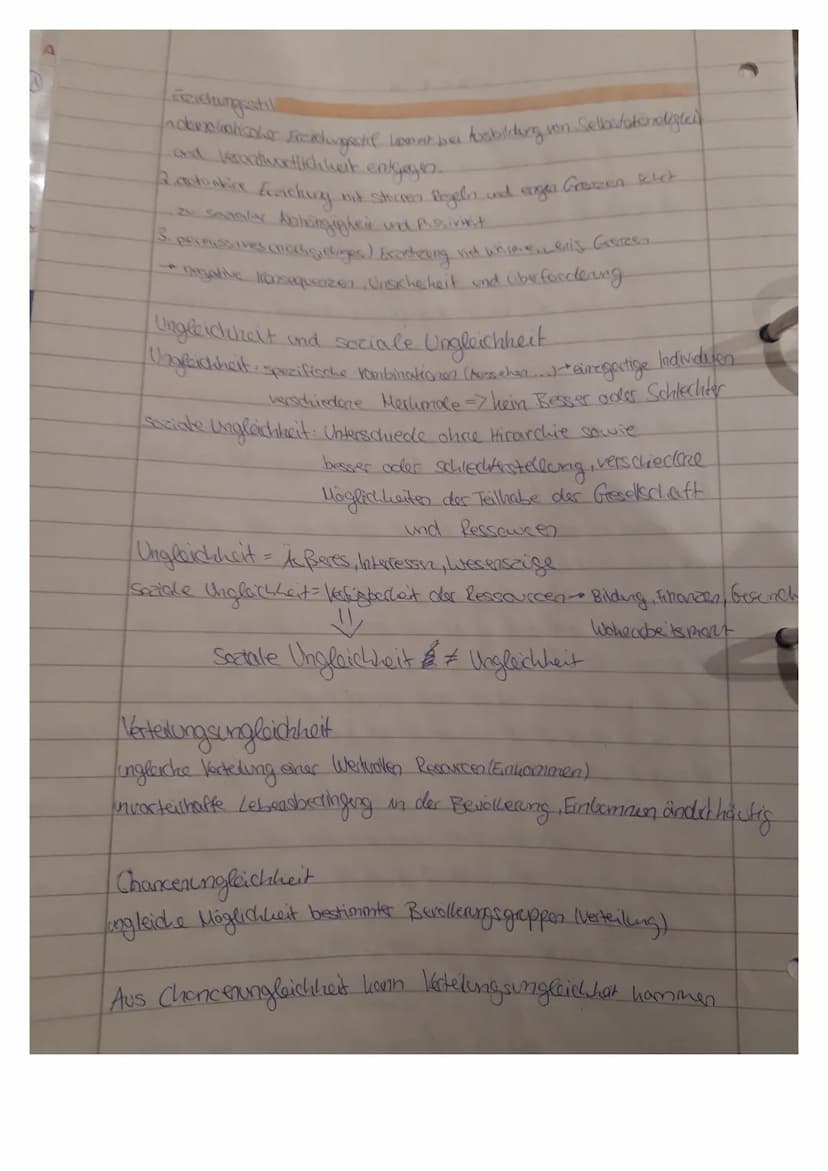 Erziehungsstil
1 demokratischer Erziehungsstil kommt der Ausbildung von Selbstständigkeit
und Verantwortlichkeit entgegen.
2 autoritäre Erziehung mit starren Regeln und engen Grenzen führt
zu sozialer Abhängigkeit und
3. permissives (nachgiebiges) Erziehung mit wenig Grenzen
→ negative Konsequenzen, Unsicherheit und Überforderung
Ungleichheit und soziale Ungleichheit
Ungleichheit: spezifische Kombinationen (Aussehen...) → einzigartige Individuen
verschiedene Merkmale => kein Besser oder Schlechter
soziale Ungleichheit: Unterschiede ohne Hirarchie sowie
besser oder schlechterstellung, verschiedene
Möglichkeiten der Teilhabe der Gesellschaft
und Ressourcen
Ungleichheit = Äußeres, Interessen, Wesenszüge
Soziale Ungleichheit = Verfügbarkeit der Ressourcen → Bildung, Finanzen, Gesundh
Wohn
Soziale Ungleichheit ≠ Ungleichheit
Verteilungsungleichheit
ungleiche Verteilung einer Wertvollen Resourcen (Einkommen)
unvorteilhafte Lebensbedingung in der Bevölkerung, Einkommen ändert häufig
Chancenungleichheit
ungleiche Möglichkeit bestimmter Bevölkerungsgruppen (Verteilung)
Aus Chancenungleichheit kann Verteilungsungleichheit kommen